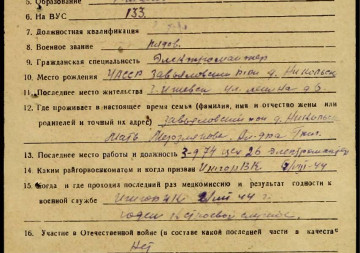 5. Образование
6. На ВУС 133.
7. Должностная квалификация
8. Военное звание рядов.
9. Гражданская специальность Электромонтер
10. Место рождения УАССР Завьяловский д. Никольск
11. Последнее место жительства г. Ижевск ул. Ленина д
12. Где проживает в настоящее время семья (фамилия, имя и отчество жены или
родителей и точный их адрес) Завьяловский д. Никольск
Мать
13. Последнее место работы и должность цех 26 электромонтер
14. Каким райгорвоенкоматом и когда призван 44
15. Когда и где проходил последний раз медкомиссию и результат годности к
военной службе 44 г.
годен к строевой службе.
16. Участие в Отечественной войне (в составе какой последней части в качестве
Нет